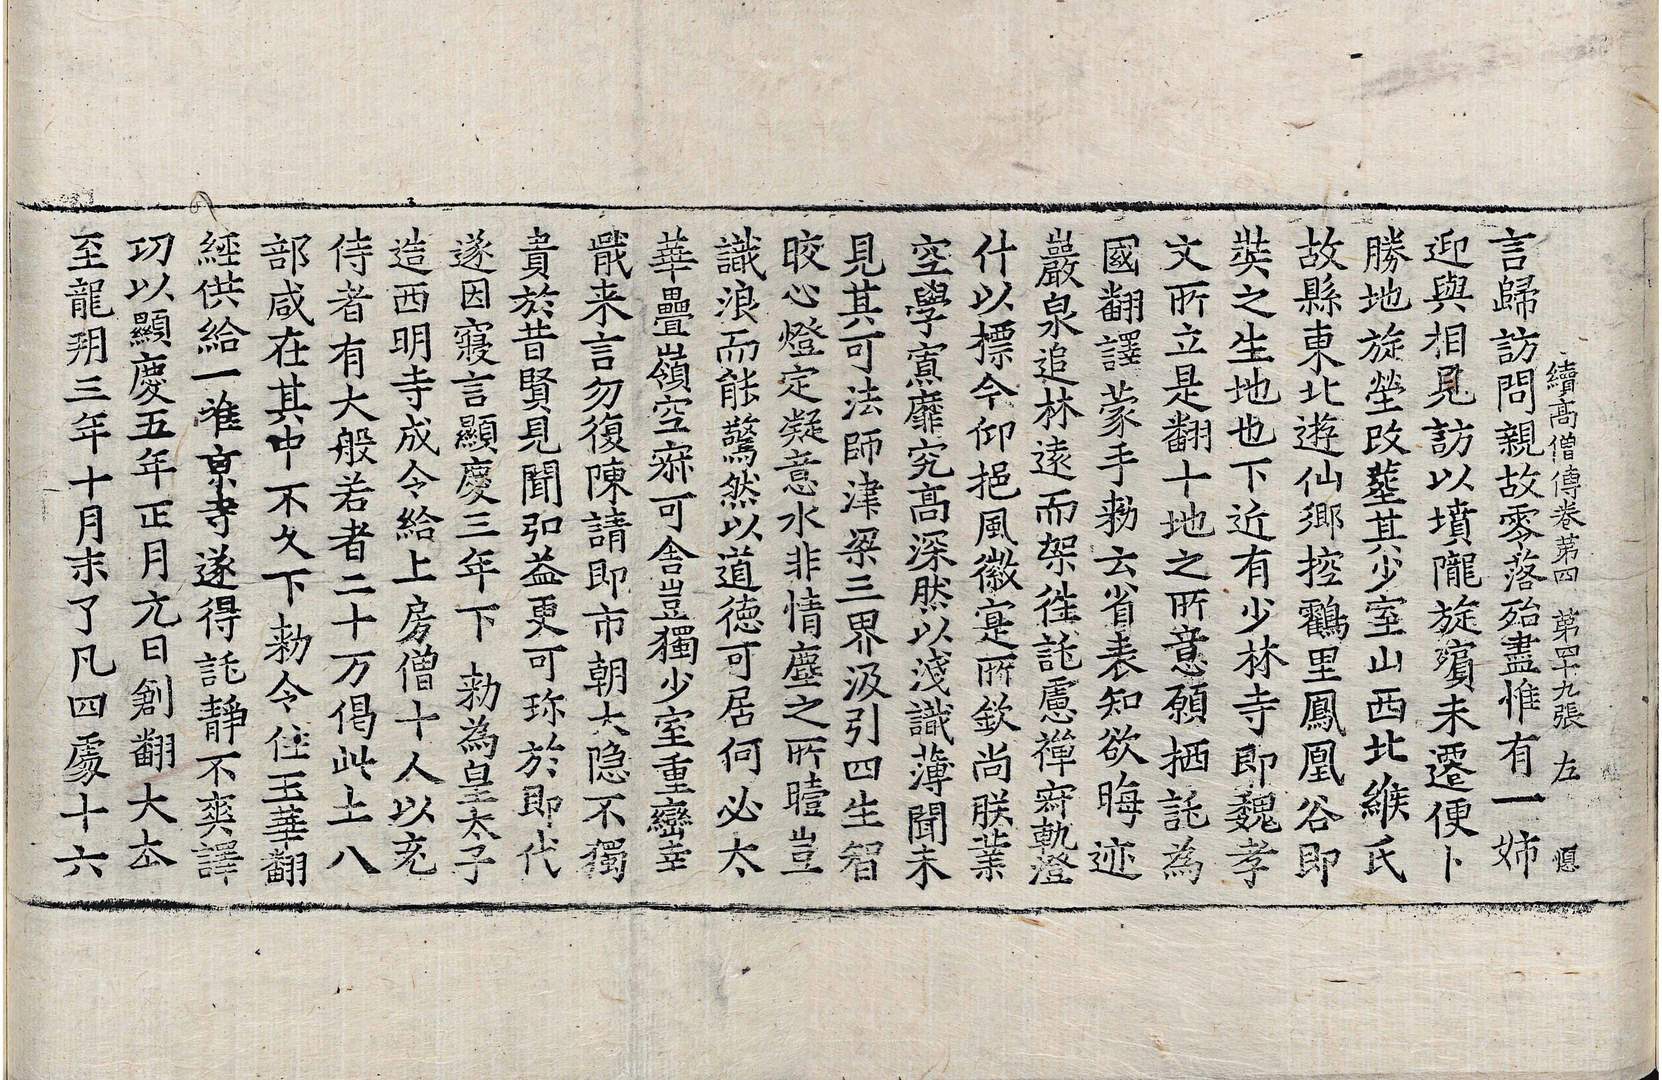 續高僧傳卷第四　第四十九張　左　𢚩
言歸訪問親故零落殆盡惟有一姉
迎與相見訪以墳隴旋殯未遷便卜
勝地旋塋改葬其少室山西北緱氏
故縣東北遊仙鄉控鶴里鳳凰谷即
奘之生地也下近有少林寺即魏孝
文所立是翻十地之所意願栖託為
國翻譯蒙手勑云省表知欲晦迹
巖泉追林遠而架往託慮禪寂軌澄
什以摽今仰挹風徽寔所欽尚朕業
空學寡靡究高深然以淺識薄聞未
見其可法師津梁三界汲引四生智
晈心燈定凝意水非情塵之所曀豈
識浪而能驚然以道德可居何必太
華疊嶺空寂可舍豈獨少室重巒幸
戢来言勿復陳請即市朝大隐不獨
貴於昔賢見聞弘益更可珎於即代
遂因寢言顯慶三年下　勑為皇太子
造西明寺成令給上房僧十人以充
侍者有大般若者二十万偈此土八
部咸在其中不久下勑令住玉華翻
經供給一准京寺遂得託靜不爽譯
功以顯慶五年正月元日創翻大本
至龍朔三年十月末了凡四處十六